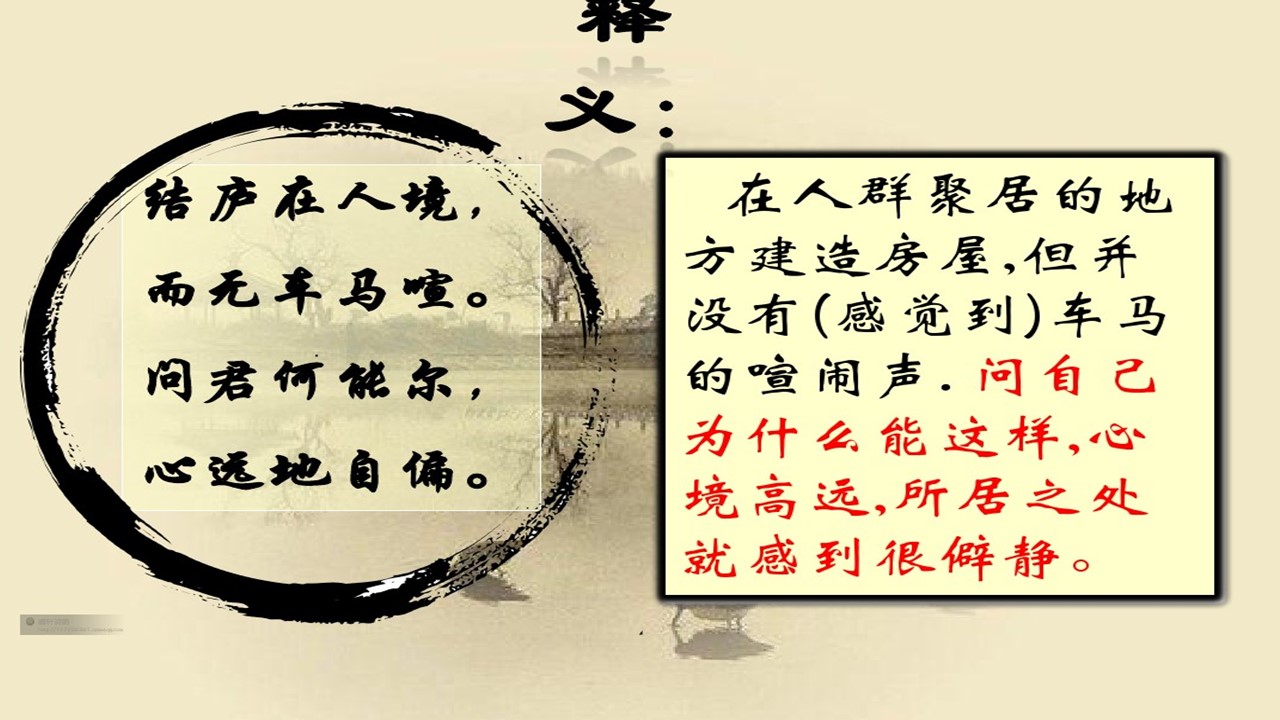 释
义：
结庐在人境，
而无车马喧。
问君何能尔，
心远地自偏。
在人群聚居的地
方建造房屋,但并
没有(感觉到)车马
的喧闹声.问自己
为什么能这样,心
境高远,所居之处
就感到很僻静。